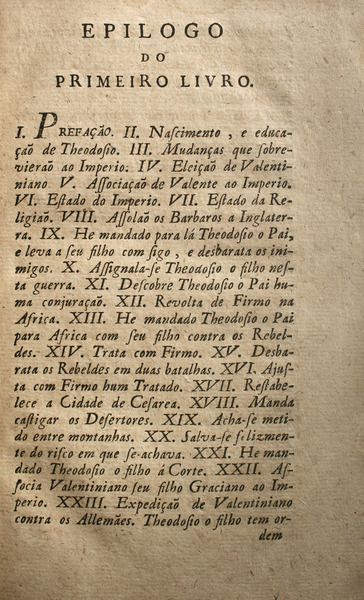 EPILOGO
DO
PRIMEIRO LIVRO.
I. PREFAÇAÕ. II. Naſcimento , e educa-
çaõ de Theodoſio. III. Mudanças que ſobre-
vieraõ ao Imperio. IV. Eleiçaõ de Valenti-
niano V. Aſſociaçaõ de Valente ao Imperio.
VI. Eſtado do Imperio. VII. Eſtado da Re-
ligiaõ. VIII. Aſſolaõ os Barbaros a Inglater-
ra. IX. He mandado para lá Theodoſio o Pai,
e leva a ſeu filho com ſigo , e desbarata os ini-
migos. X. Aſſignala-ſe Theodoſio o filho neſ-
ta guerra. XI. Deſcobre Theodoſio o Pai hu-
ma conjuraçaõ. XII. Revolta de Firmo na
Africa. XIII. He mandado Theodoſio o Pai
para Africa com ſeu filho contra os Rebel-
des. XIV. Trata com Firmo. XV. Desba-
rata os Rebeldes em duas batalhas. XVI. Ajuſ-
ta com Firmo hum Tratado. XVII. Reſtabe-
lece a Cidade de Ceſarea. XVIII. Manda
caſtigar os Deſertores. XIX. Acha-ſe meti-
do entre montanhas. XX. Salva-ſe felizmen-
te do riſco em que ſe-achava. XXI. He man-
dado Theodoſio o filho á Corte. XXII. Aſ-
ſocia Valentiniano ſeu filho Graciano ao Im-
perio. XXIII. Expediçaõ de Valentiniano
contra os Allemães. Theodoſio o filho tem or-
dem